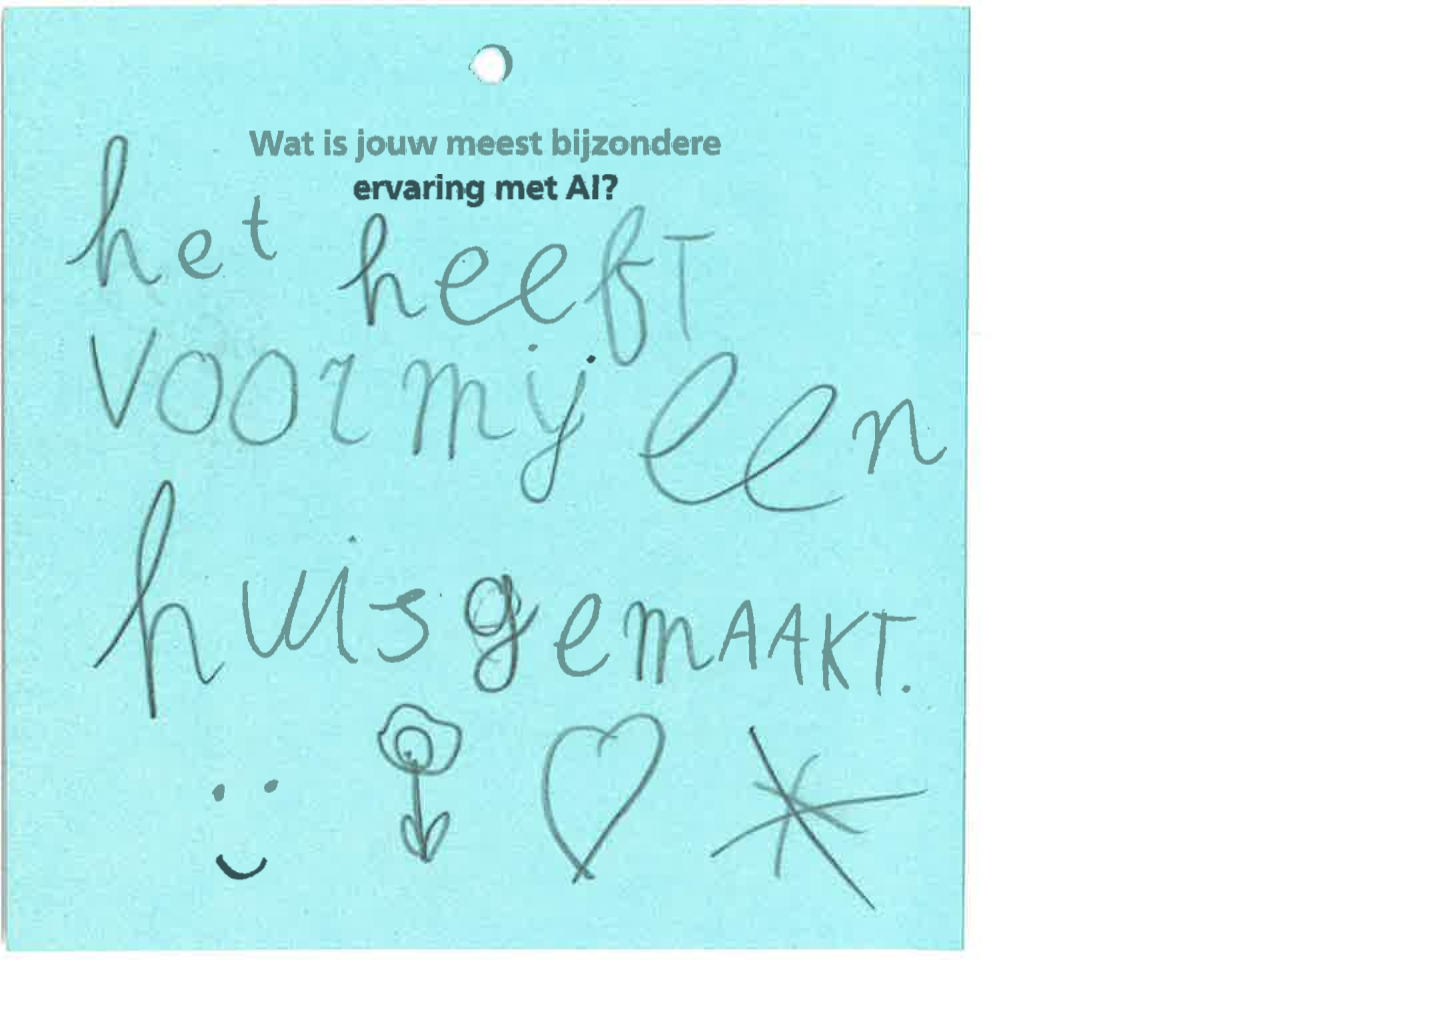 Wat is jouw meest bijzondere
ervaring met AI?
het heeft
voor mij een
huis gemAAKT.